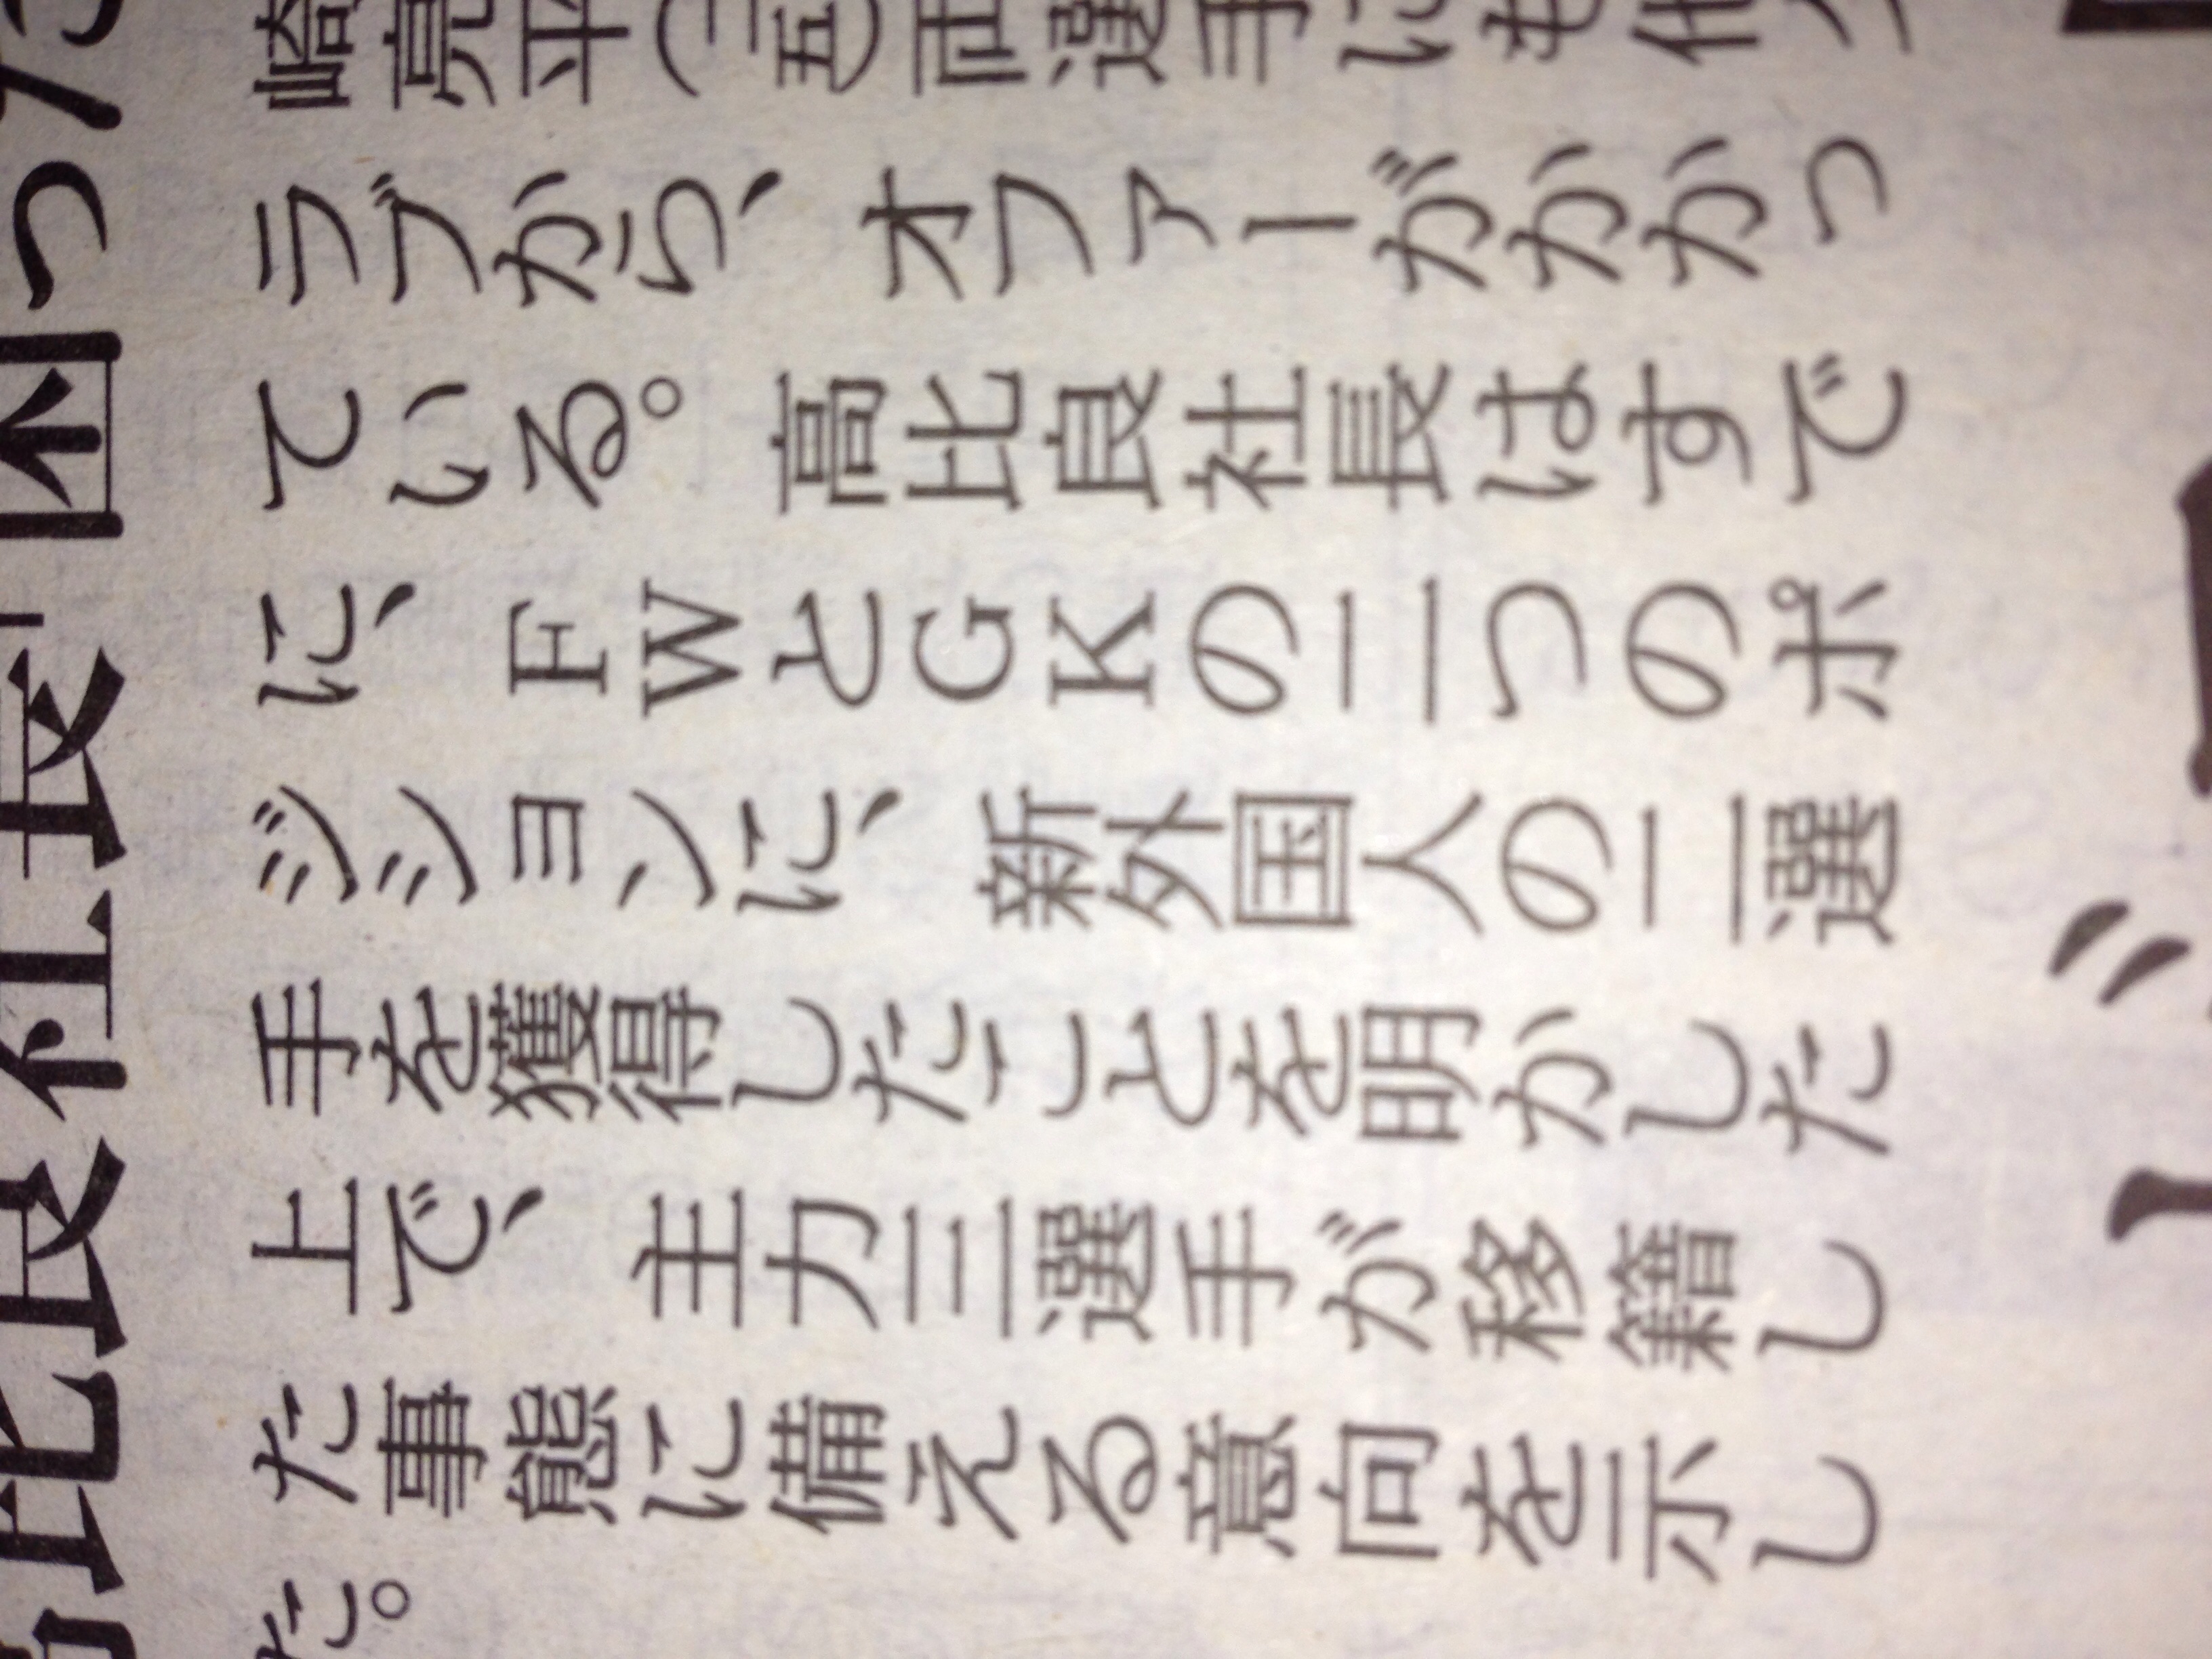 崎亮平(二五)両選手にも他ク
ラブから、オファーがかかっ
ている。高比良社長はすで
に、FWとGKの二つのポ
ジションに、新外国人の二選
手を獲得したことを明かした
上で、主力三選手が移籍し
た事態に備える意向を示し
た。
高比良社長「困った